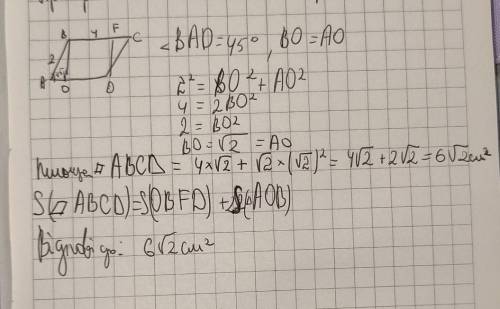 B 4 F C
2
A 45° O D
∠BAD = 45°, BO = AO
2² = BO² + AO²
4 = 2BO²
2 = BO²
BO = √2 = AO
Площа ▱ ABCD = 4×√2 + √2×(√2)² = 4√2 + 2√2 = 6√2 cm²
S(▱ ABCD) = S(OBFD) + S(AOB)
Відповідь: 6√2 cm²